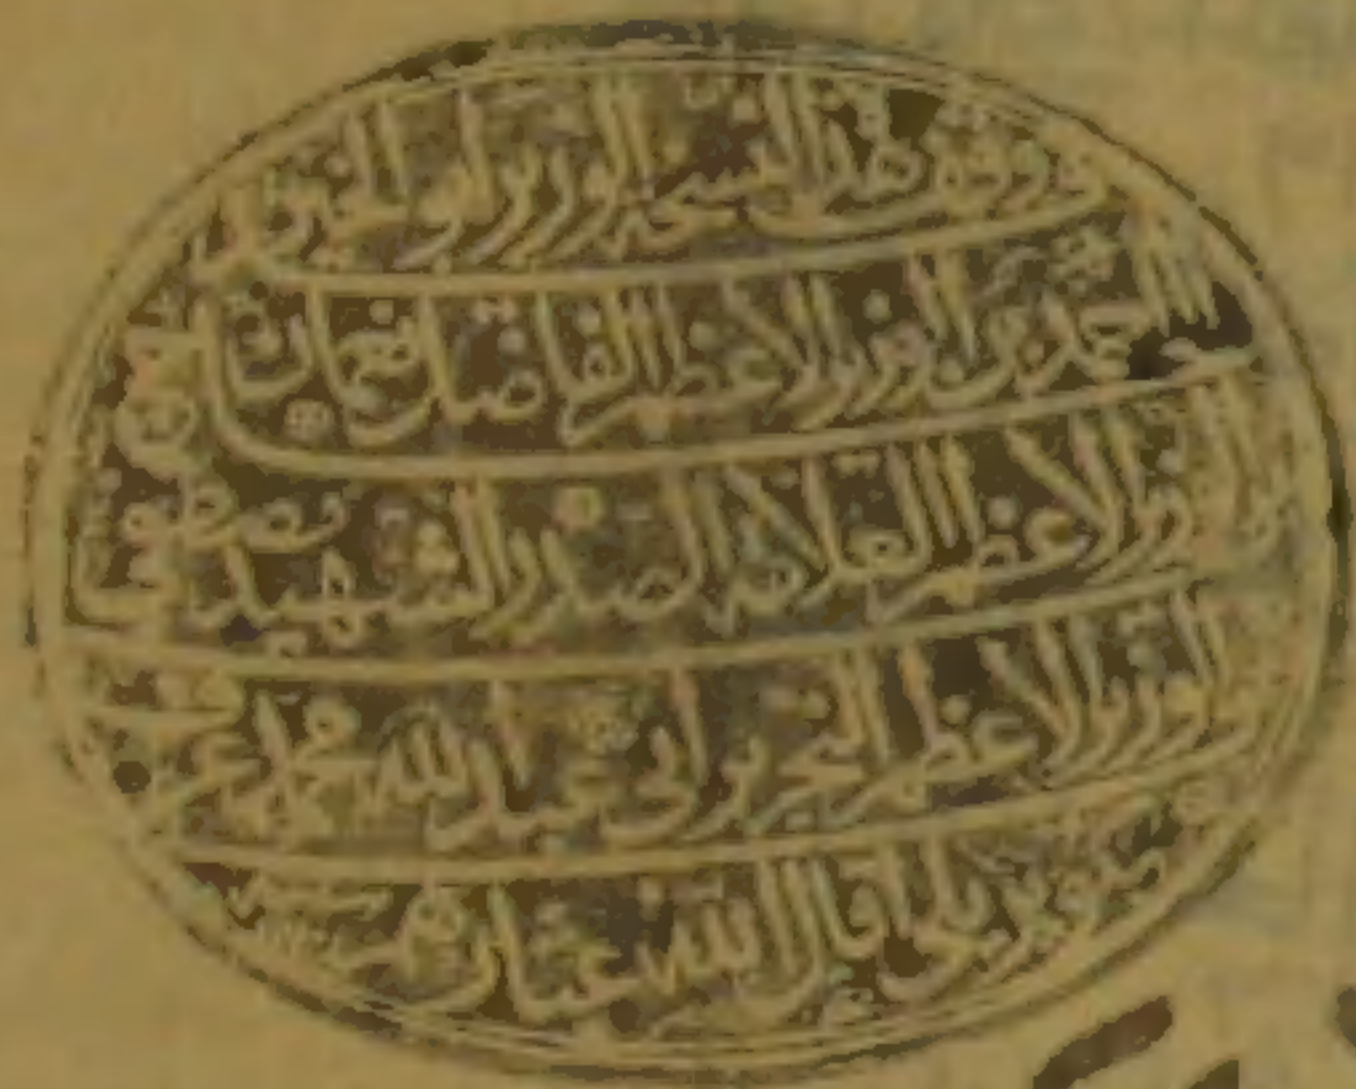 قد وقف هذه النسخة الوزير ابو الخير
الحاج احمد بن الوزير الاعظم الفاضل نعمان بن
الوزير الاعظم العلامة الصدر الشهيد مصطفى بن
الوزير الاعظم النحرير ابي عبد الله محمد عرف
بكوپريلي اقال الله عثارهم